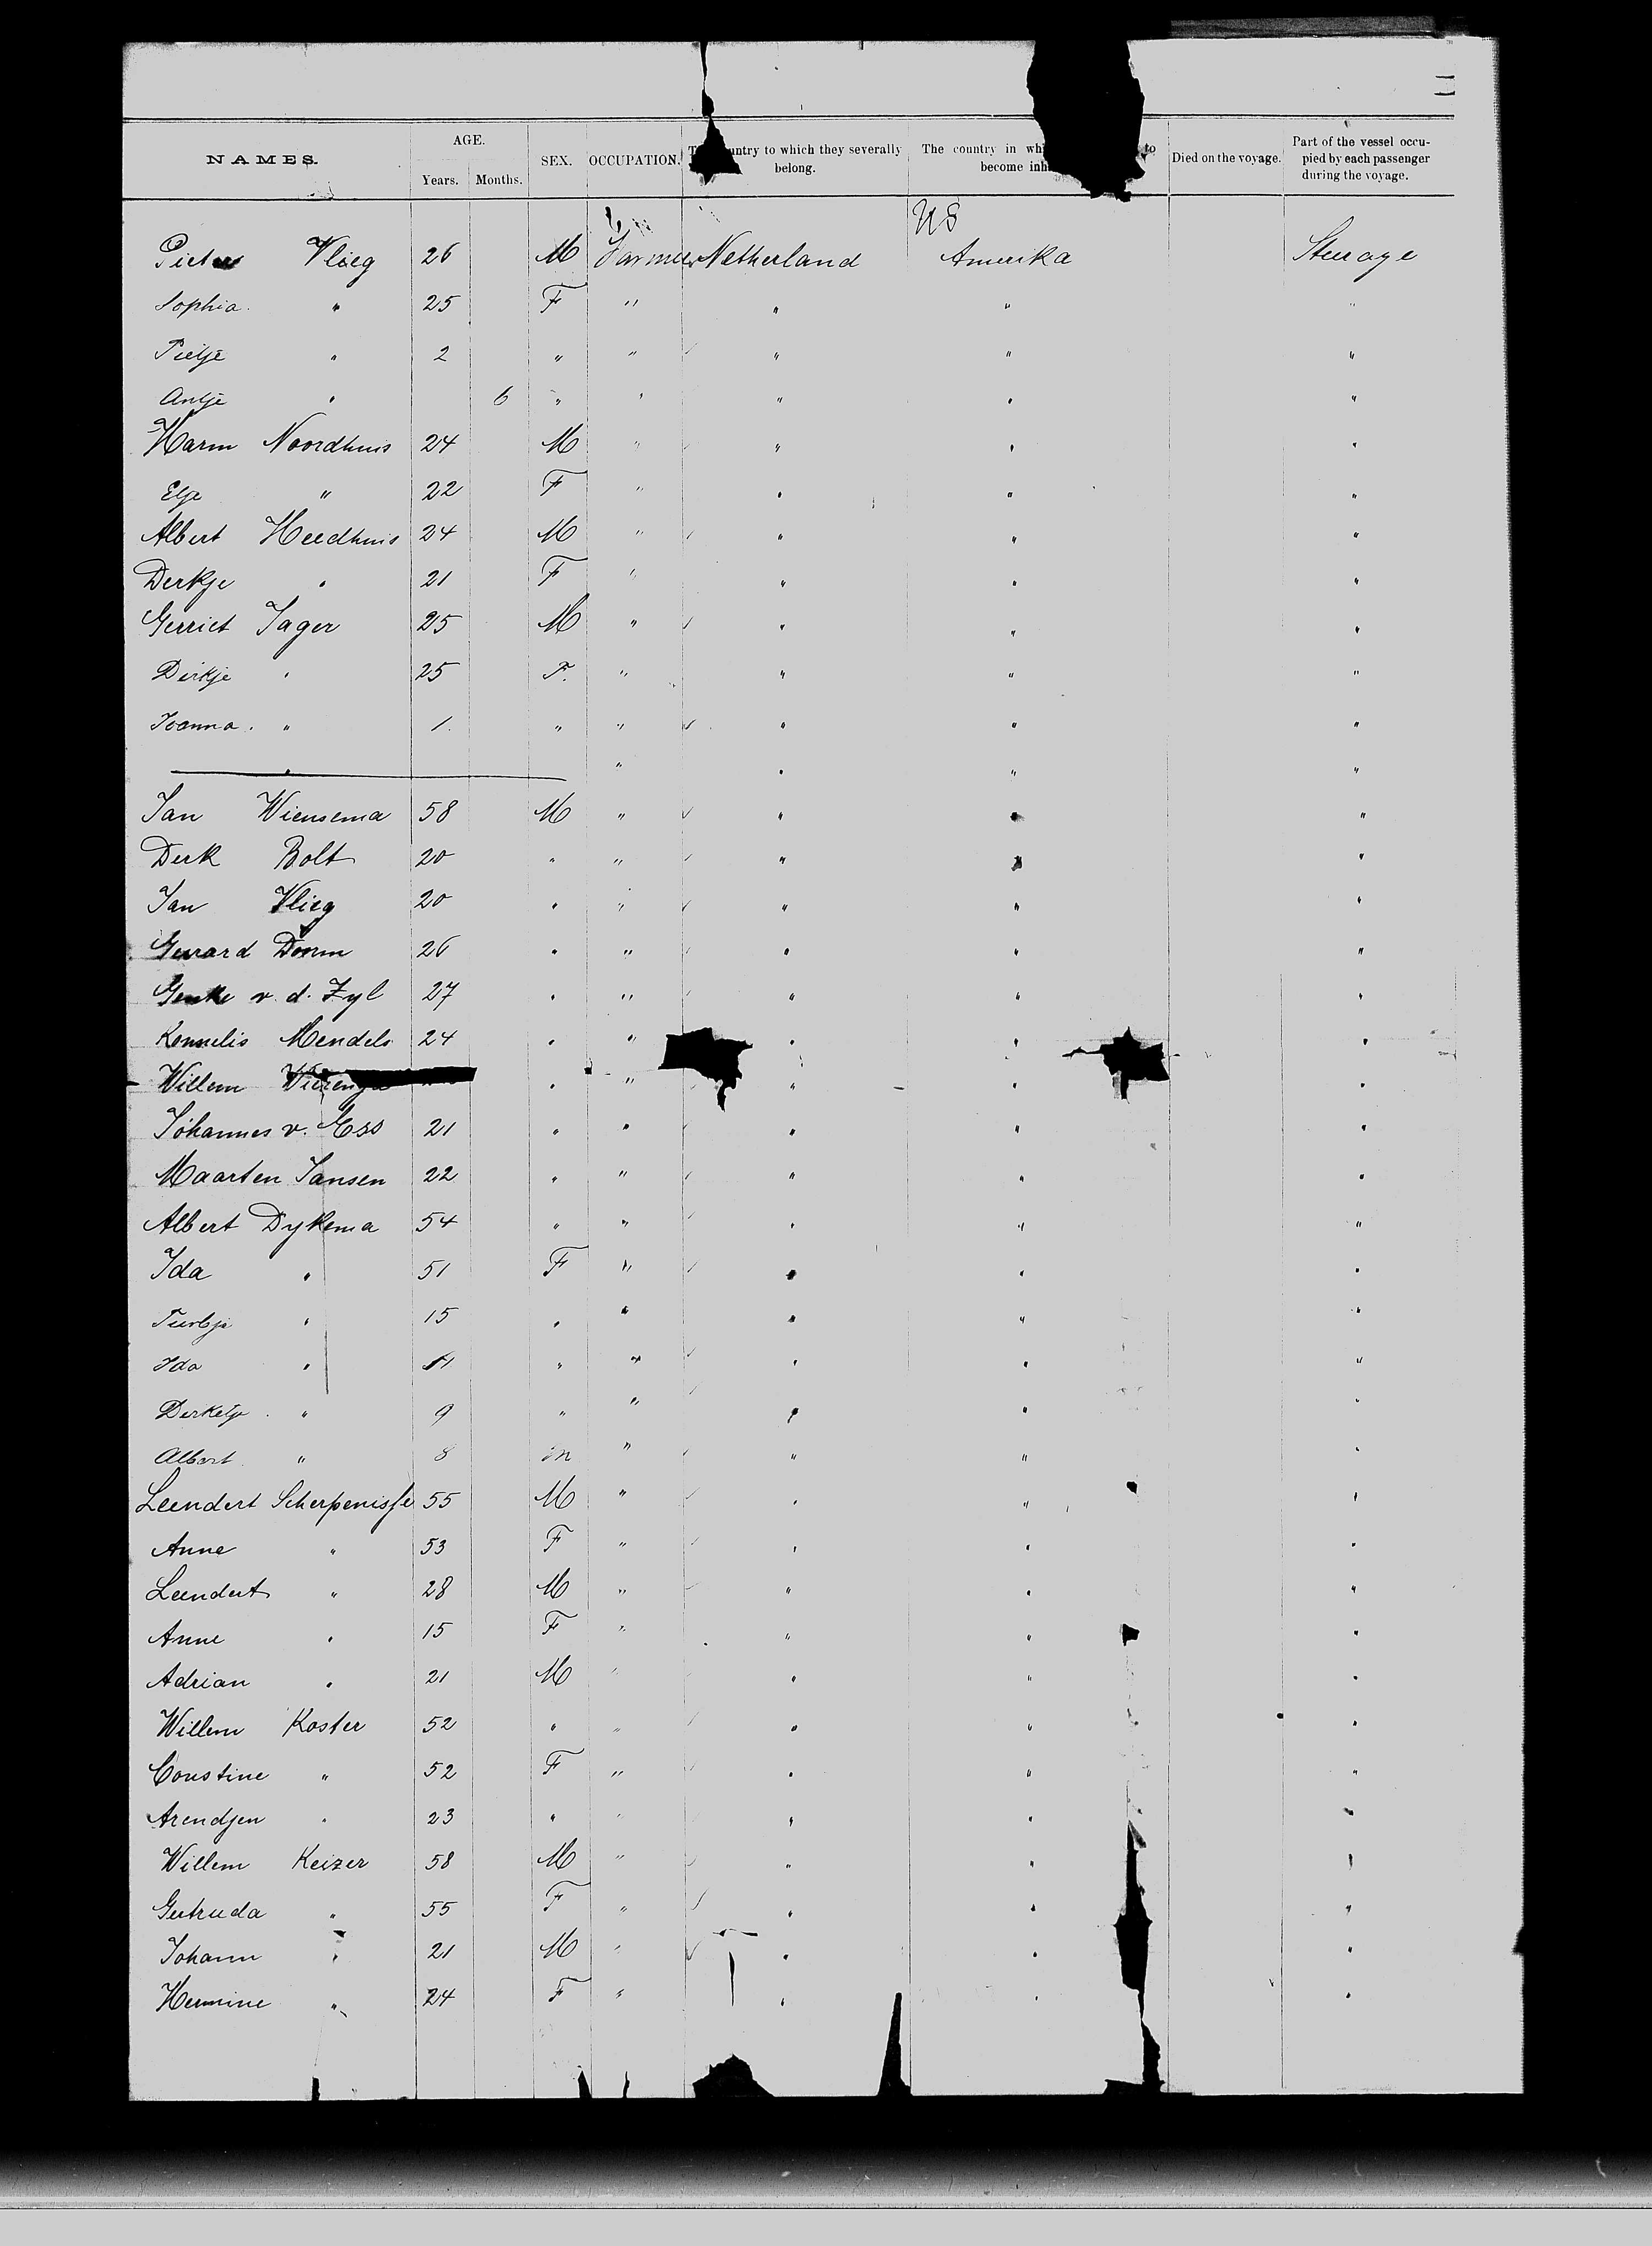 NAMES. AGE. Years. Months. SEX. OCCUPATION. country to which they severally belong. The country in to become Died on the voyage. Part of the vessel occupied by each passenger during the voyage.
US
Pieter Vlieg 26 M Farmer Netherland Amerika Steerage
Sophia " 25 F " " " "
Pietje " 2 " " " " "
Antje " 6 " " " " "
Harm Noordhuis 24 M " " " "
Elje " 22 F " " " "
Albert Heedhuis 24 M " " " "
Derkje " 21 F " " " "
Gerriet Jager 25 M " " " "
Dirkje " 25 F. " " " "
Joanna. " 1. " " " " "
" " " " "
Jan Wiensema 58 M " " " "
Derk Bolt 20 " " " " "
Jan Vlieg 20 " " " " "
Gerard Doorn 26 " " " " "
v. d. Zyl 27 " " " " "
Kornelis Mendels 24 " " " " "
Willem Wierenga " " " " "
Johannes v. Ess 21 " " " " "
Maarten Jansen 22 " " " " "
Albert Dykema 54 " " " " "
Ida " 51 F " " " "
" 15 " " " " "
Ida " 11 " " " " "
Derketje " 9 " " " " "
Albert " 8 m " " " "
Leendert Scherpenisse 55 M " " " "
Anne " 53 F " " " "
Leendert " 28 M " " " "
Anne " 15 F " " " "
Adrian " 21 M " " " "
Willem Koster 52 " " " " "
Coustine " 52 F " " " "
Arendjen " 23 " " " " "
Willem Keizer 58 M " " " "
Gertruda " 55 F " " " "
Johann " 21 M " " " "
Hermine " 24 F " " " "